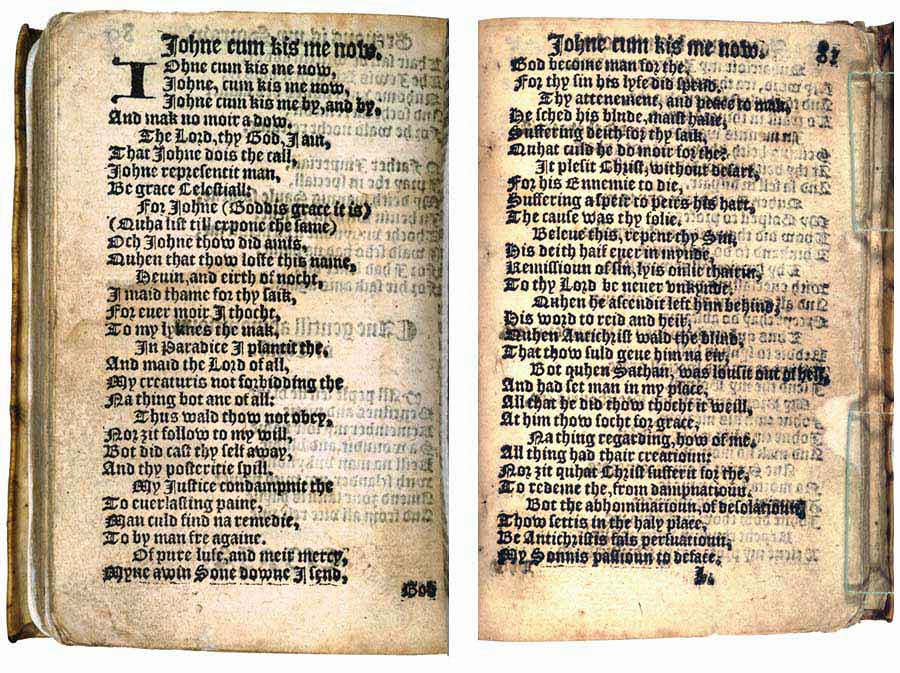 Johne cum kis me now.
JOhne cum kis me now,
Johne, cum kis me now,
Johne cum kis me by, and by,
And mak no moir adow.
The Lord, thy God, I am,
That Johne dois the call,
Johne representit man,
Be grace Celestiall:
For Johne (Goddis grace it is)
(Quha list till expone the same)
Och Johne thow did amis,
Quhen that thow losse this name,
Hevin, and eirth of nocht,
I maid thame for thy saik,
For euer moir I thocht,
To my lyknes the mak,
In Paradice I plantit the,
And maid the Lord of all,
My creaturis not forbidding the
Na thing bot ane of all:
Thus wald thow not obey,
Nor zit follow to my will,
Bot did cast thy self away,
And thy posteritie spill,
My Justice condampnit the
To everlasting paine,
Man culd find na remedie,
To by man fre againe.
Of pure lufe, and meir mercy,
Myne awin Sone downe I send,
God
Johne cum kis me now. 81
God become man for the,
For thy sin his lyfe did spend,
Thy attenement, and peace to mak,
He sched his blude, maist halie,
Suffering deith for thy saik,
Quhat culd he do moir for the?
It plesit Christ, without desart,
For his Ennemie to die,
Suffering a speir to peirs his hart,
The cause was thy folie.
Beleue this, repent thy Sin,
His deith haif euer in mynde,
Remissioun of sin, lyis onlie thairin,
To thy Lord be neuer vnkynde,
Quhen he ascendit left him behind,
His word to reid and heir,
Quhen Antichrist wald the blind,
That thow suld geue him na eir,
Bot quhen Sathan, was lousit out of hell,
And had set man in my place,
All that he did thow thocht it weill,
At him thow socht for grace,
Na thing regarding, how of me,
All thing had thair creatioun:
Nor zit quhat Christ sufferit for the,
To redeme the, from dampnatioun.
Bot the abhominatioun, of desolatioun,
Thow settis in the haly place,
Be Antichristis fals persuatioun,
My Sonnis passioun to deface.
L.